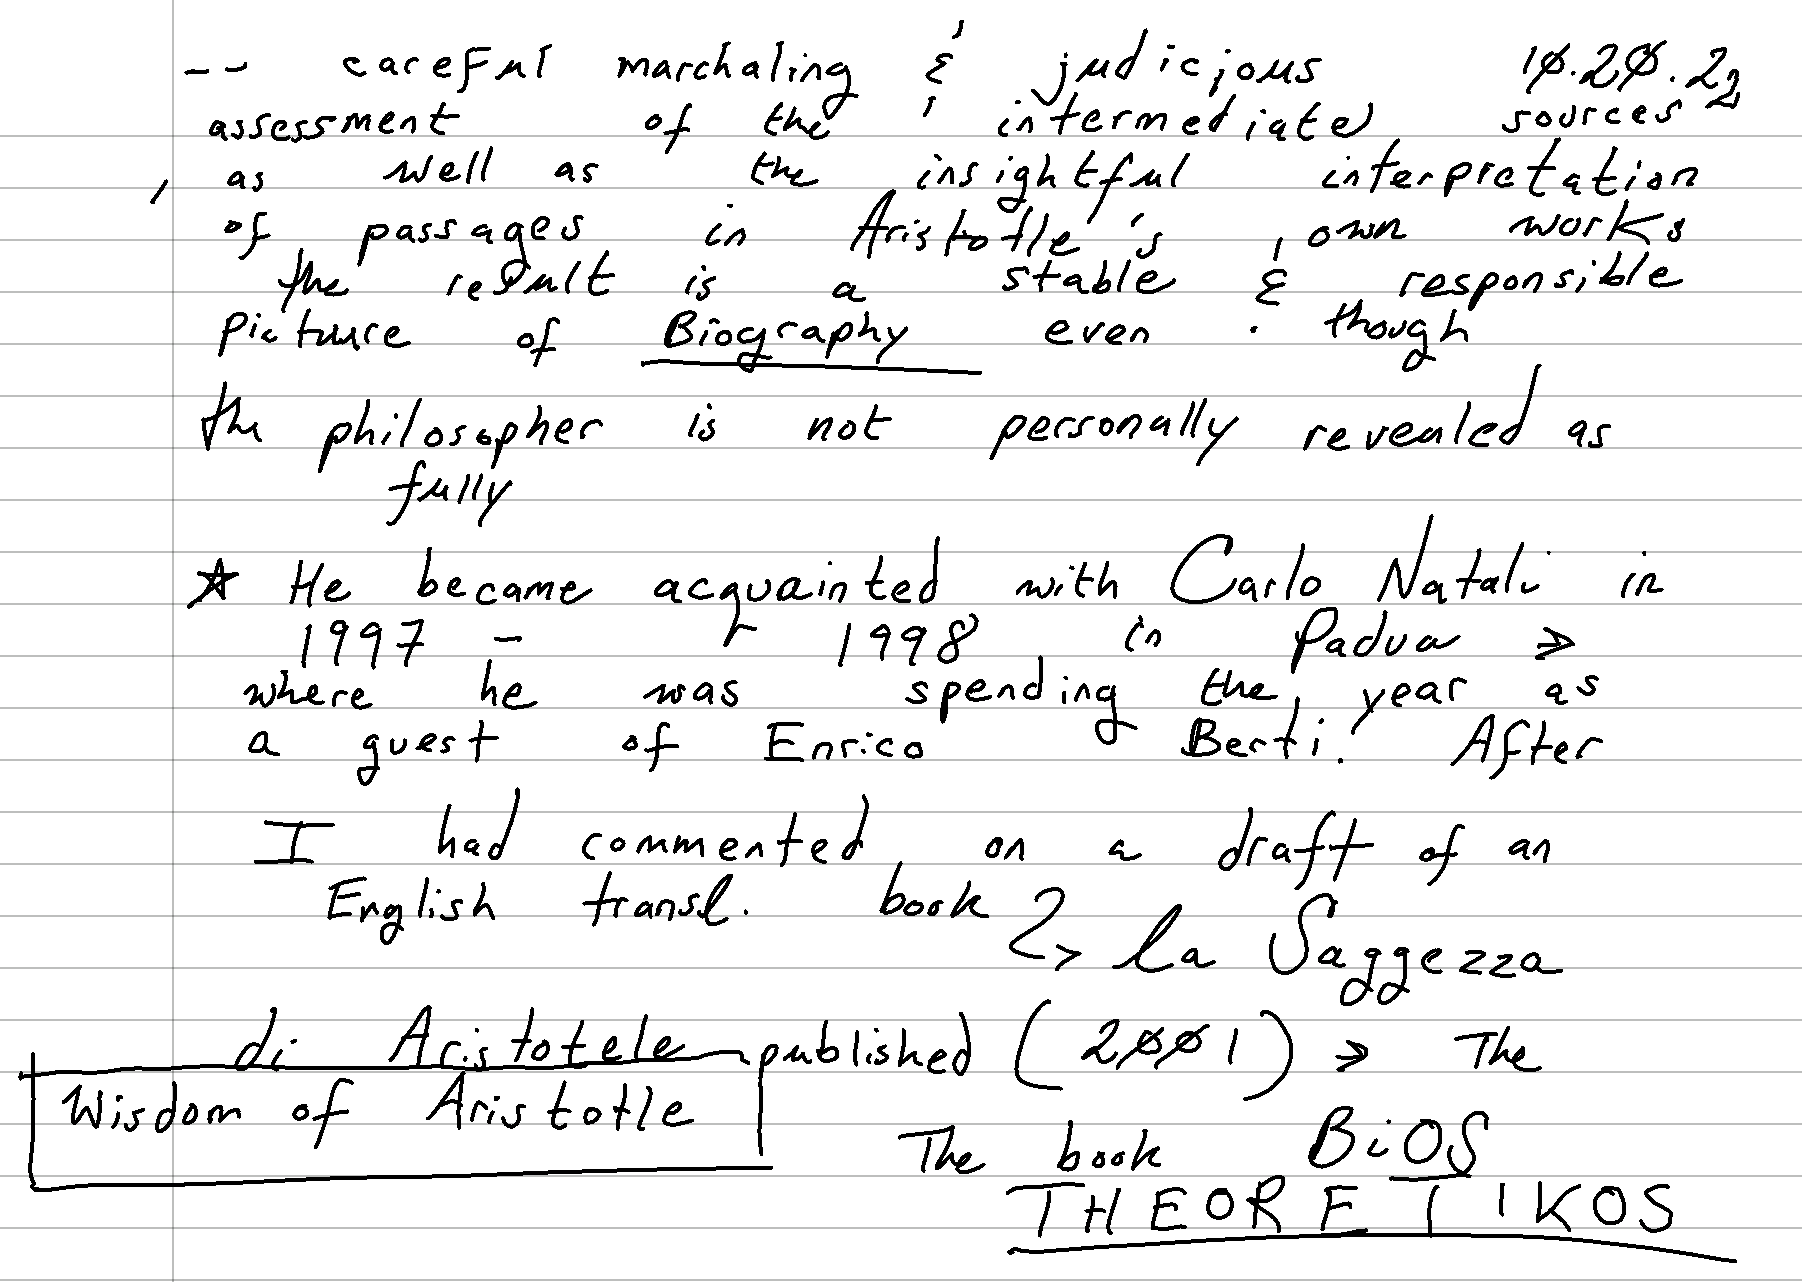 -- careful marchaling & judicious 10.20.22
assessment of the intermediate sources
, as well as the insightful interpretation
of passages in Aristotle's own works
the result is a stable & responsible
picture of Biography even though
the philosopher is not personally revealed as
fully
☆ He became acquainted with Carlo Natali in
1997 - 1998 in Padua >
where he was spending the year as
a guest of Enrico Berti. After
I had commented on a draft of an
English transl. book
→ la Saggezza
di Aristotele published (2001) > The
Wisdom of Aristotle
The book BiOS
THEORETIKOS